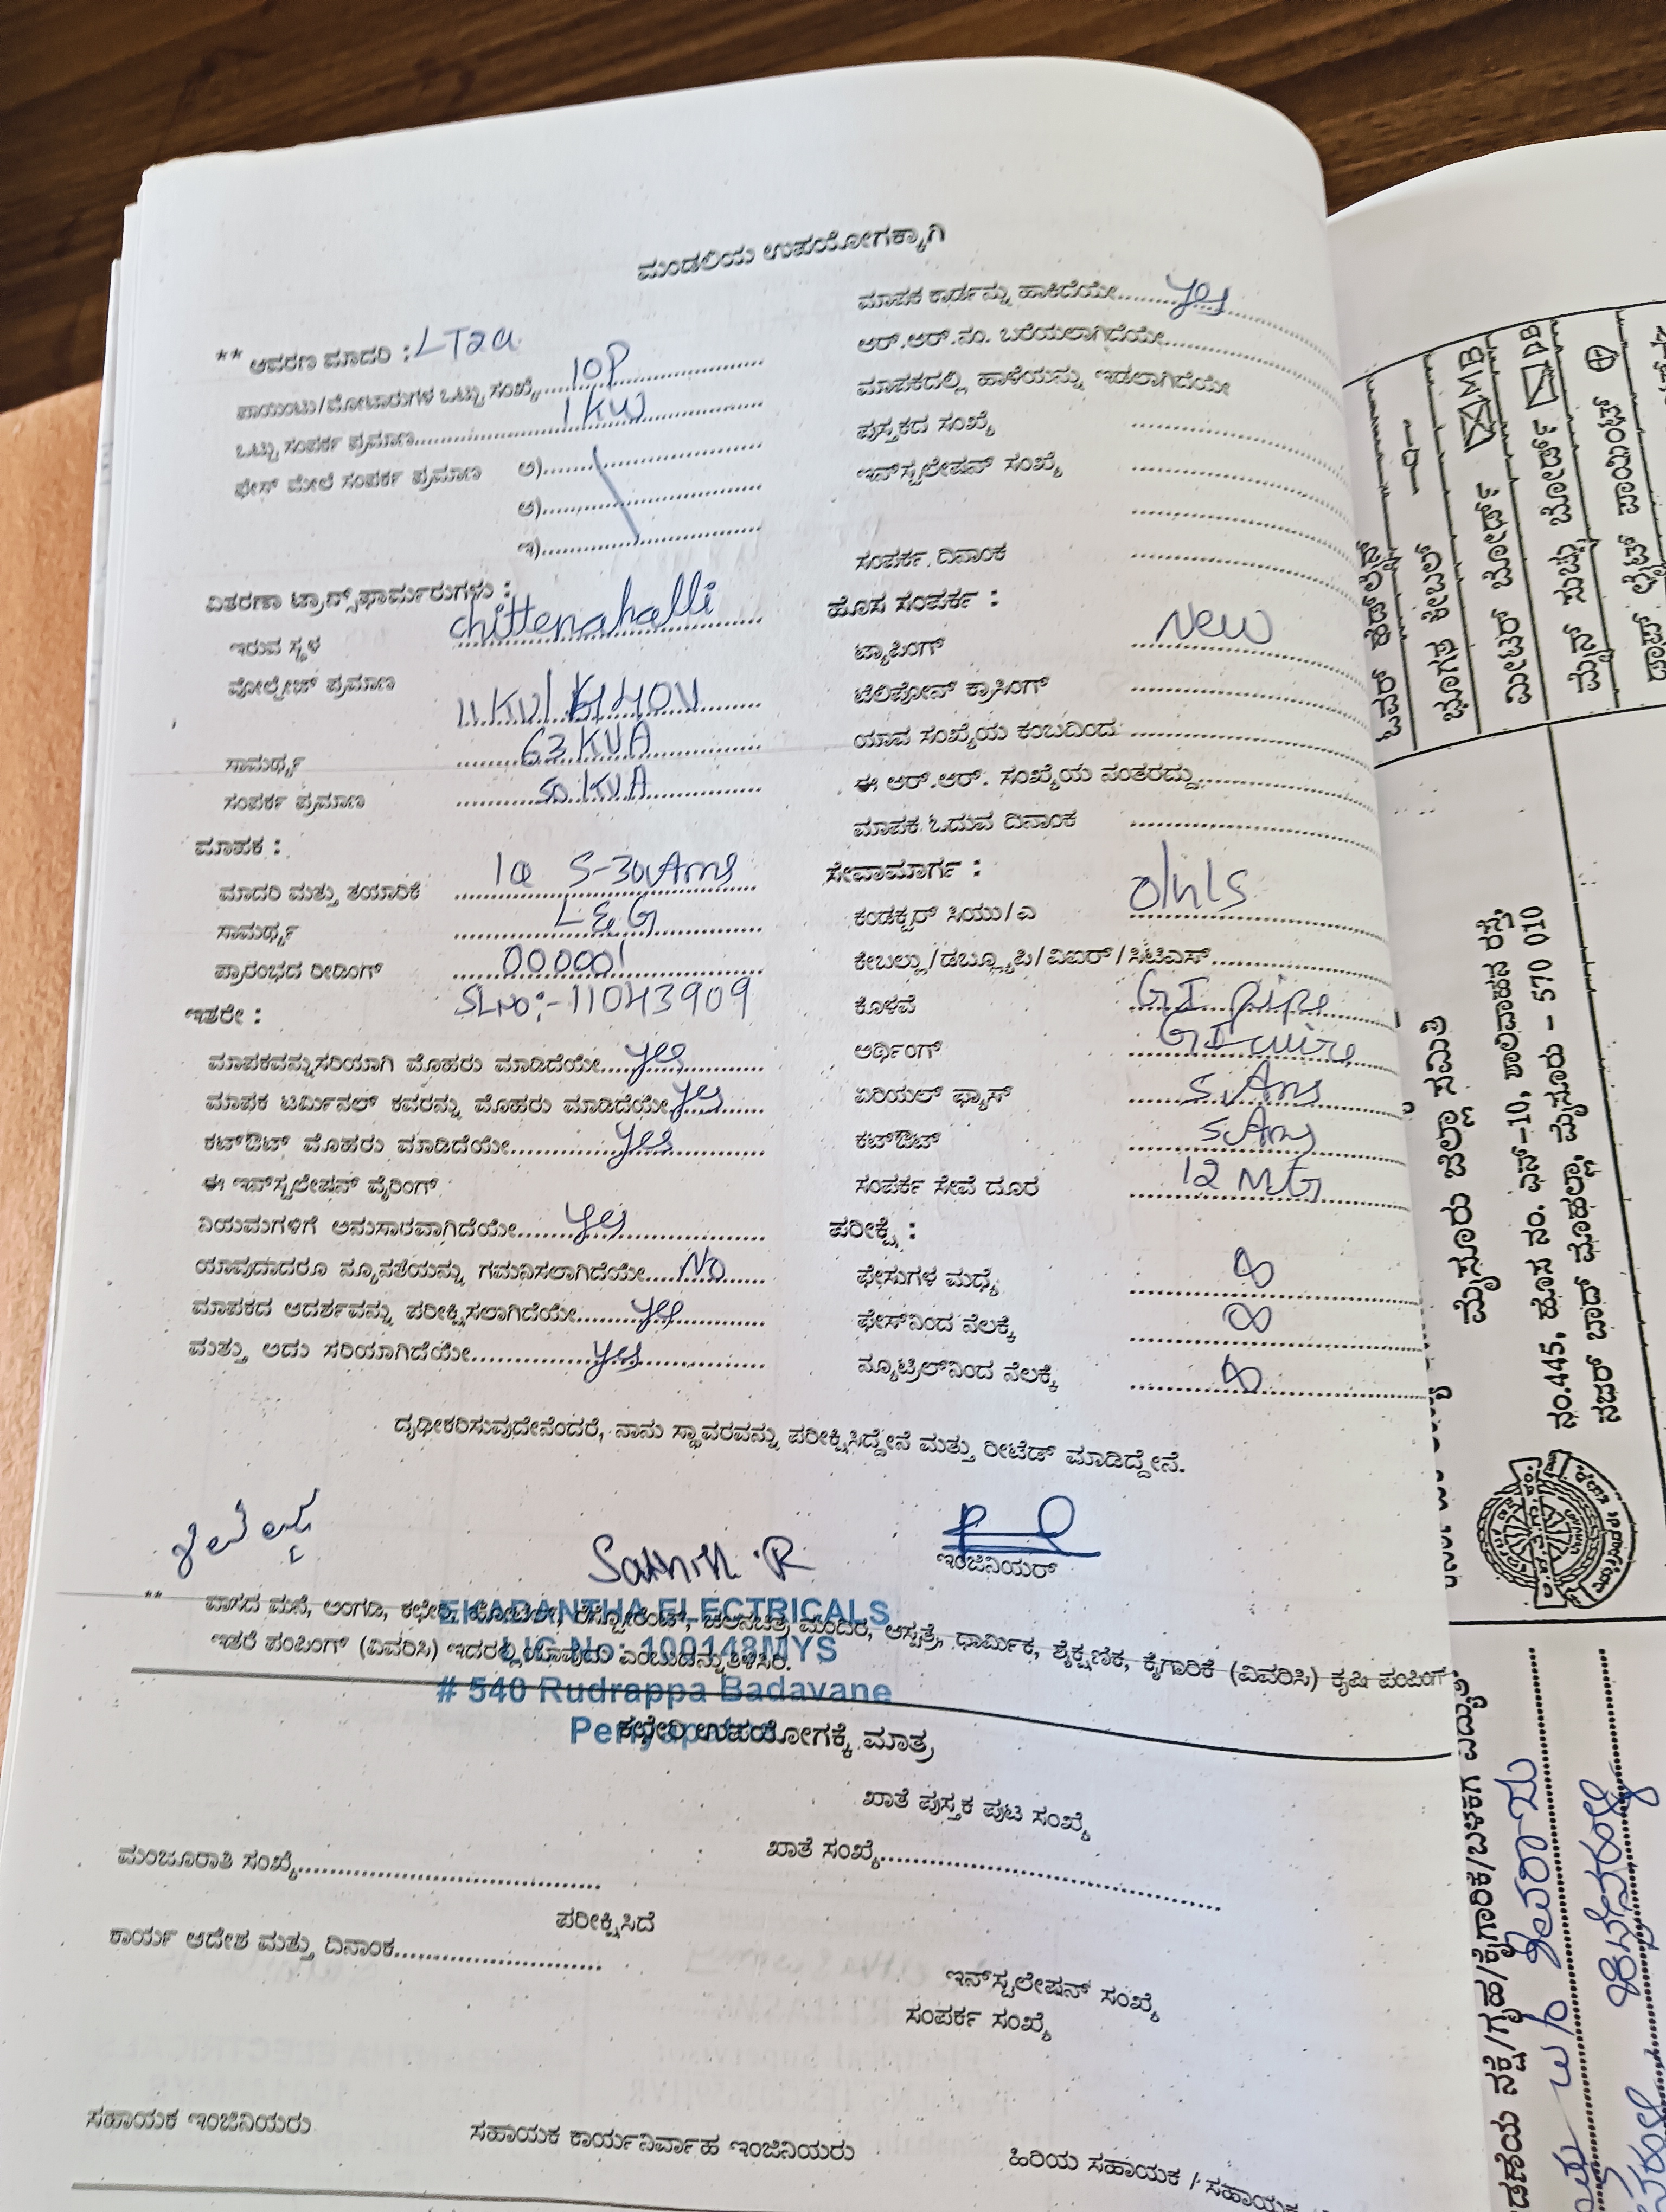 ಮಂಡಲಿಯ ಉಪಯೋಗಕ್ಕಾಗಿ
** ಆವರಣ ಮಾದರಿ : LT2a
ಪಾಯಿಂಟು/ಮೋಟಾರುಗಳ ಒಟ್ಟು ಸಂಖ್ಯೆ..... 10P
ಒಟ್ಟು ಸಂಪರ್ಕ ಪ್ರಮಾಣ..... 1 KW
ಫೇಸ್ ಮೇಲೆ ಸಂಪರ್ಕ ಪ್ರಮಾಣ ಅ).....
ಆ).....
ಇ).....
ವಿತರಣಾ ಟ್ರಾನ್ಸ್‌ಫಾರ್ಮರುಗಳು :
ಇರುವ ಸ್ಥಳ chittenahalli
ವೋಲ್ಟೇಜ್ ಪ್ರಮಾಣ 11 KV/ 440V
ಸಾಮರ್ಥ್ಯ 63 KVA
ಸಂಪರ್ಕ ಪ್ರಮಾಣ 50 KVA
ಮಾಪಕ :
ಮಾದರಿ ಮತ್ತು ತಯಾರಿಕೆ 1Ø 5-30Ams
ಸಾಮರ್ಥ್ಯ L&G
ಪ್ರಾರಂಭದ ರೀಡಿಂಗ್ 000001
SLNO:-11043909
ಇತರೇ :
ಮಾಪಕವನ್ನು ಸರಿಯಾಗಿ ಮೊಹರು ಮಾಡಿದೆಯೇ..... yes
ಮಾಪಕ ಟರ್ಮಿನಲ್ ಕವರನ್ನು ಮೊಹರು ಮಾಡಿದೆಯೇ yes
ಕಟ್‌ಔಟ್ ಮೊಹರು ಮಾಡಿದೆಯೇ..... yes
ಈ ಇನ್‌ಸ್ಟಲೇಷನ್ ವೈರಿಂಗ್
ನಿಯಮಗಳಿಗೆ ಅನುಸಾರವಾಗಿದೆಯೇ..... yes
ಯಾವುದಾದರೂ ನ್ಯೂನತೆಯನ್ನು ಗಮನಿಸಲಾಗಿದೆಯೇ.... No
ಮಾಪಕದ ಆದರ್ಶವನ್ನು ಪರೀಕ್ಷಿಸಲಾಗಿದೆಯೇ..... yes
ಮತ್ತು ಅದು ಸರಿಯಾಗಿದೆಯೇ..... yes
ಮಾಪಕ ಕಾರ್ಡನ್ನು ಹಾಕಿದೆಯೇ..... yes
ಆರ್.ಆರ್.ನಂ. ಬರೆಯಲಾಗಿದೆಯೇ.....
ಮಾಪಕದಲ್ಲಿ ಹಾಳೆಯನ್ನು ಇಡಲಾಗಿದೆಯೇ
ಪುಸ್ತಕದ ಸಂಖ್ಯೆ
ಇನ್‌ಸ್ಟಲೇಷನ್ ಸಂಖ್ಯೆ
ಸಂಪರ್ಕ ದಿನಾಂಕ
ಹೊಸ ಸಂಪರ್ಕ :
ಟ್ಯಾಪಿಂಗ್ New
ಟೆಲಿಫೋನ್ ಕ್ರಾಸಿಂಗ್
ಯಾವ ಸಂಖ್ಯೆಯ ಕಂಬದಿಂದ
ಈ ಆರ್.ಆರ್. ಸಂಖ್ಯೆಯ ನಂತರದ್ದು.....
ಮಾಪಕ ಓದುವ ದಿನಾಂಕ
ಸೇವಾಮಾರ್ಗ :
ಕಂಡಕ್ಟರ್ ಸಿಯು/ಎ o/h/s
ಕೇಬಲ್ಲು/ಡಬ್ಲ್ಯೂಪಿ/ವಿಐರ್/ಸಿಟಿಎಸ್.....
ಕೊಳವೆ GI pipe
ಅರ್ಥಿಂಗ್ GI wire
ಏರಿಯಲ್ ಫ್ಯೂಸ್ 5 Ams
ಕಟ್‌ಔಟ್ 5 Ams
ಸಂಪರ್ಕ ಸೇವೆ ದೂರ 12 MG
ಪರೀಕ್ಷೆ :
ಫೇಸುಗಳ ಮಧ್ಯೆ ∞
ಫೇಸ್‌ನಿಂದ ನೆಲಕ್ಕೆ ∞
ನ್ಯೂಟ್ರಿಲ್‌ನಿಂದ ನೆಲಕ್ಕೆ ∞
ದೃಢೀಕರಿಸುವುದೇನೆಂದರೆ, ನಾನು ಸ್ಥಾವರವನ್ನು ಪರೀಕ್ಷಿಸಿದ್ದೇನೆ ಮತ್ತು ರೀಟೆಡ್ ಮಾಡಿದ್ದೇನೆ.
ಇಂಜಿನಿಯರ್
** ವಾಸದ ಮನೆ, ಅಂಗಡಿ, ಕಛೇರಿ, ಹೋಟೆಲ್, ರೆಸ್ಟೋರೆಂಟ್, ಚಲನಚಿತ್ರ ಮಂದಿರ, ಆಸ್ಪತ್ರೆ, ಧಾರ್ಮಿಕ, ಶೈಕ್ಷಣಿಕ, ಕೈಗಾರಿಕೆ (ವಿವರಿಸಿ) ಕೃಷಿ ಪಂಪಿಂಗ್
ಇತರೆ ಪಂಪಿಂಗ್ (ವಿವರಿಸಿ) ಇದರಲ್ಲಿ ಯಾವುದು ಎಂಬುದನ್ನು ತಿಳಿಸಿರಿ.
EKADANTHA ELECTRICALS
LIC No: 100148MYS
# 540 Rudrappa Badavane
ಕಛೇರಿ ಉಪಯೋಗಕ್ಕೆ ಮಾತ್ರ
ಖಾತೆ ಪುಸ್ತಕ ಪುಟ ಸಂಖ್ಯೆ
ಮಂಜೂರಾತಿ ಸಂಖ್ಯೆ.....
ಖಾತೆ ಸಂಖ್ಯೆ.....
ಪರೀಕ್ಷಿಸಿದೆ
ಕಾರ್ಯ ಆದೇಶ ಮತ್ತು ದಿನಾಂಕ.....
ಇನ್‌ಸ್ಟಲೇಷನ್ ಸಂಖ್ಯೆ
ಸಂಪರ್ಕ ಸಂಖ್ಯೆ
ಸಹಾಯಕ ಇಂಜಿನಿಯರು
ಸಹಾಯಕ ಕಾರ್ಯನಿರ್ವಾಹ ಇಂಜಿನಿಯರು
ಹಿರಿಯ ಸಹಾಯಕ / ಸಹಾಯಕ
ಮೈಸೂರು ಜಿಲ್ಲಾ ಸಮಿತಿ
ನಂ.445, ಹೊಸ ನಂ. ಎನ್-10, ಶಾಲಿವಾಹನ ರಸ್ತೆ,
ನಜರ್ ಬಾದ್ ಮೊಹಲ್ಲಾ, ಮೈಸೂರು - 570 010